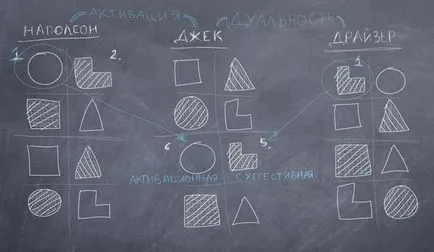 АКТИВАЦИЯ ДУАЛЬНОСТЬ
НАПОЛЕОН ДЖЕК ДРАЙЗЕР
1 2. 1
6 5.
АКТИВАЦИОННАЯ СУГГЕСТИВНАЯ